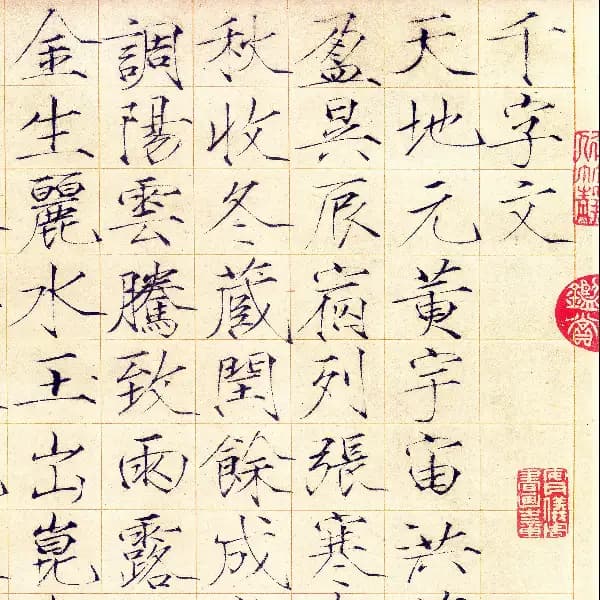 千字文
天地元黄宇宙洪
盈昃辰宿列張寒
秋收冬藏閏餘成
調陽雲騰致雨露
金生麗水玉出崑